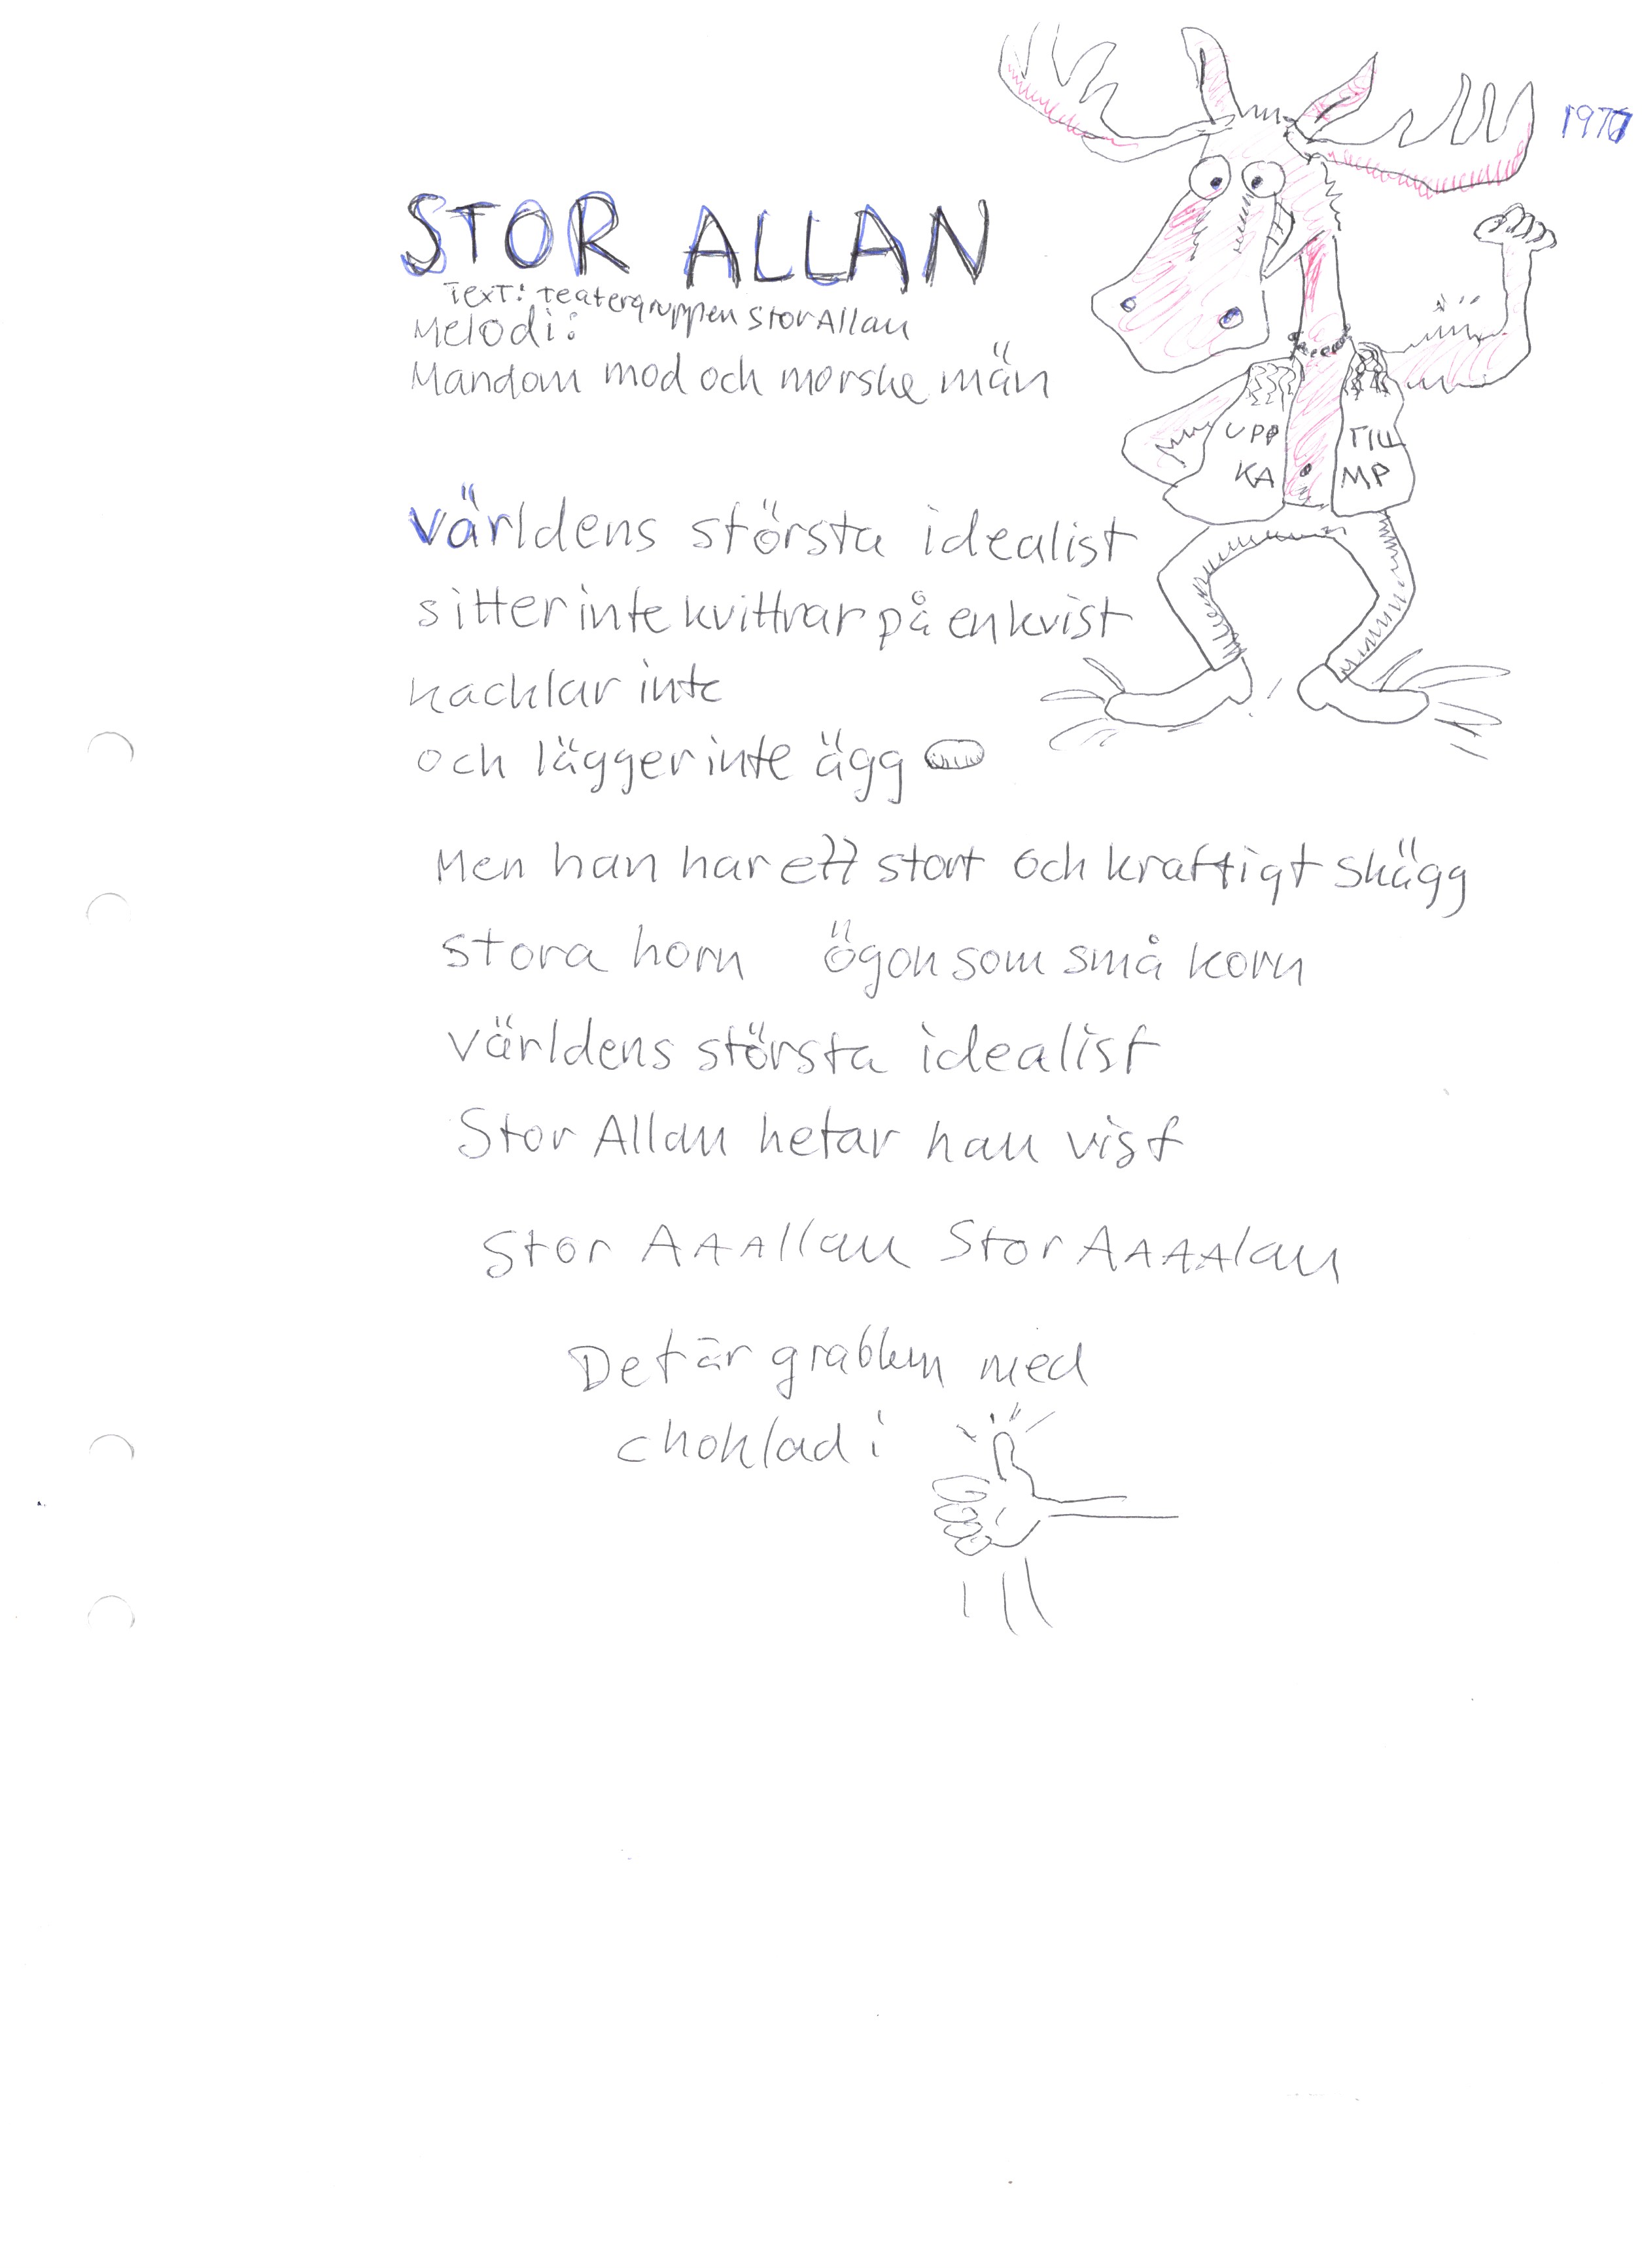 1977
STOR ALLAN
Text: teatergruppen Stor Allan
Melodi:
Mandom mod och morske män
UPP TILL
KA MP
världens största idealist
sitter inte kvittrar på en kvist
kacklar inte
och lägger inte ägg
Men han har ett stort och kraftigt skägg
stora horn ögon som små korn
världens största idealist
Stor Allan hetar han visst
Stor AAAllan Stor AAAAlan
Det är grabben med
choklad i